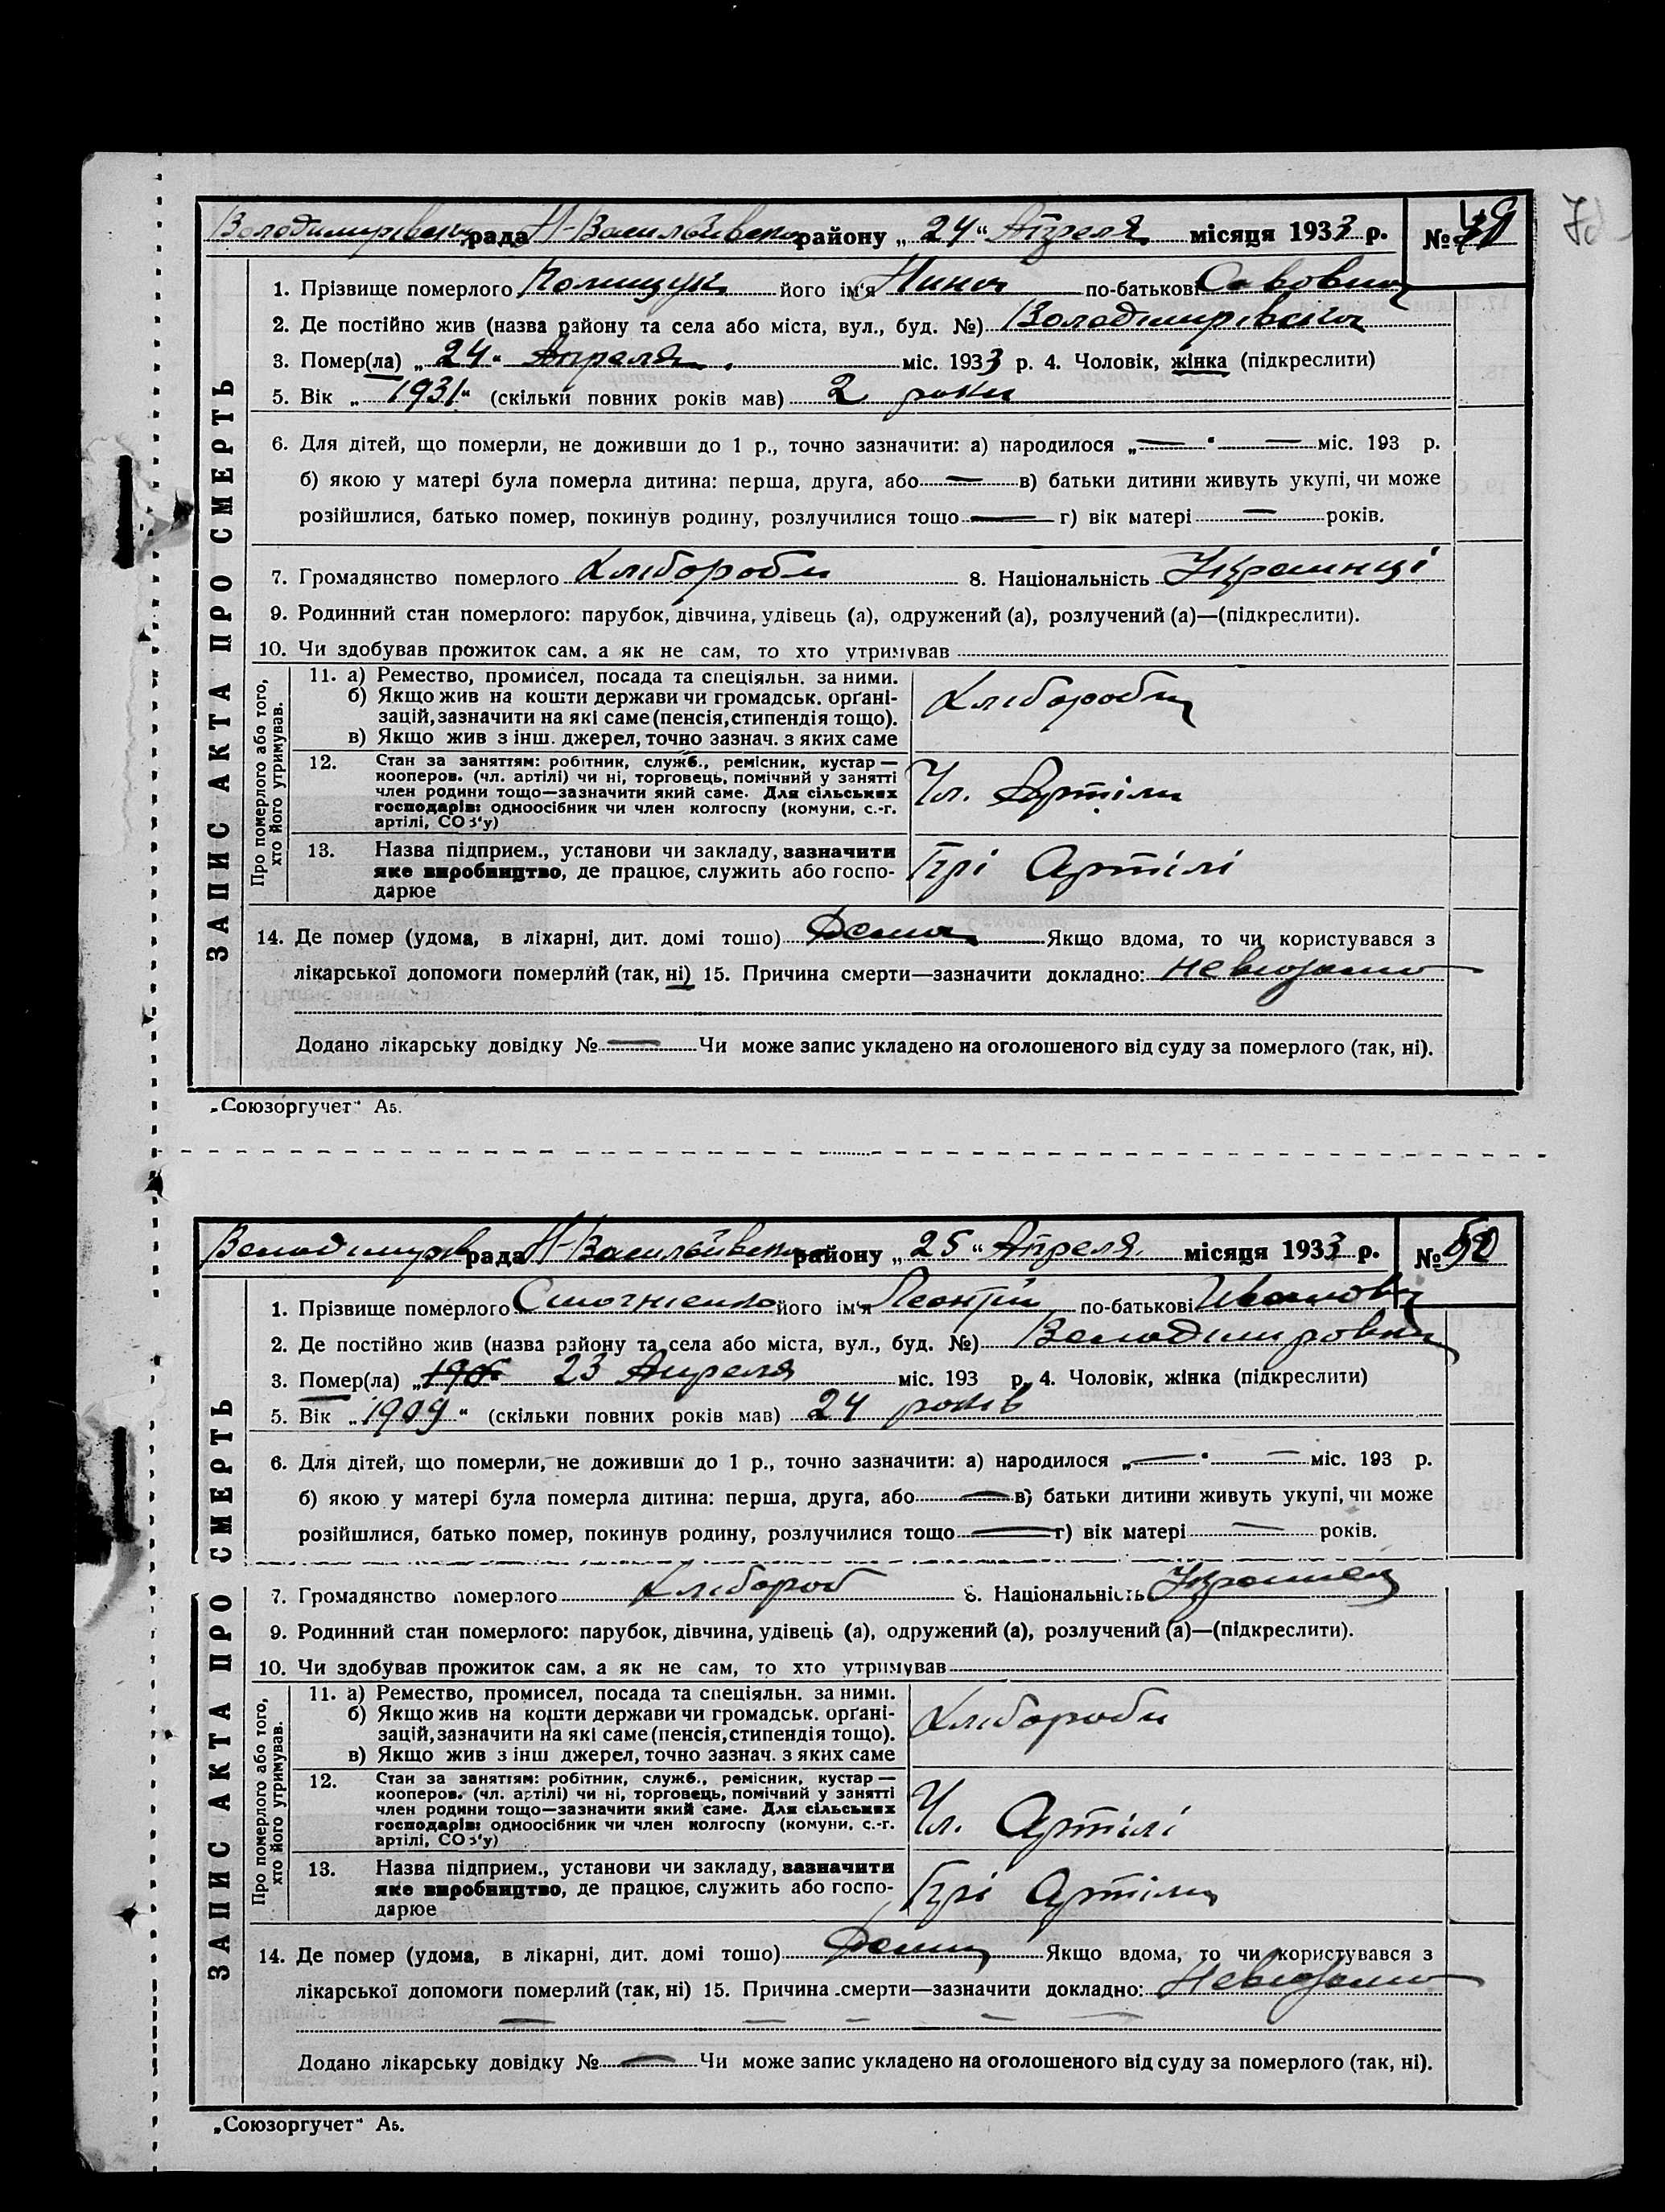 Володимирівська рада Н-Васильївського району „ 24 “ Апреля місяця 1933 р. № 49
1. Прізвище померлого Полищук його ім'я Нина по-батькові Савовна
2. Де постійно жив (назва району та села або міста, вул., буд. №) Володимирівка
3. Помер(ла) „ 24 “ Апреля міс. 1933 р. 4. Чоловік, жінка (підкреслити)
5. Вік „ 1931 “ (скільки повних років мав) 2 роки
6. Для дітей, що померли, не доживши до 1 р., точно зазначити: а) народилося „ — “ — міс. 193 р.
б) якою у матері була померла дитина: перша, друга, або — в) батьки дитини живуть укупі, чи може
розійшлися, батько помер, покинув родину, розлучилися тощо — г) вік матері — років.
7. Громадянство померлого Хлібороби 8. Національність Українці
9. Родинний стан померлого: парубок, дівчина, удівець (а), одружений (а), розлучений (а)—(підкреслити).
10. Чи здобував прожиток сам, а як не сам, то хто утримував
ЗАПИС АКТА ПРО СМЕРТЬ
Про померлого або того,
хто його утримував.
11. а) Ремество, промисел, посада та спеціяльн. за ними.
б) Якщо жив на кошти держави чи громадськ. орґані-
зацій, зазначити на які саме (пенсія, стипендія тощо).
в) Якщо жив з інш. джерел, точно зазнач. з яких саме
Хлібороби
12. Стан за заняттям: робітник, служб., ремісник, кустар —
кооперов. (чл. артілі) чи ні, торговець, помічний у занятті
член родини тощо—зазначити який саме. Для сільських
господарів: одноосібник чи член колгоспу (комуни, с.-г.
артілі, СОЗ'у)
Чл. Артіли
13. Назва підприєм., установи чи закладу, зазначити
яке виробництво, де працює, служить або госпо-
дарює
Прі Артілі
14. Де помер (удома, в ліхарні, дит. домі тощо) Дома Якщо вдома, то чи користувався з
лікарської допомоги померлий (так, ні) 15. Причина смерти—зазначити докладно: Невідомо
Додано лікарську довідку № — Чи може запис укладено на оголошеного від суду за померлого (так, ні).
„Союзоргучет“ А5.
рада Н-Васильївського району „ 25 “ Апреля місяця 1933 р. № 50
1. Прізвище померлого його ім'я Леонтій по-батькові Иванович
2. Де постійно жив (назва району та села або міста, вул., буд. №) Володимировка
3. Помер(ла) „ 23 Апреля міс. 193 р. 4. Чоловік, жінка (підкреслити)
5. Вік „ 1909 “ (скільки повних років мав) 24 років
6. Для дітей, що померли, не доживши до 1 р., точно зазначити: а) народилося „ — “ — міс. 193 р.
б) якою у матері була померла дитина: перша, друга, або — в) батьки дитини живуть укупі, чи може
розійшлися, батько помер, покинув родину, розлучилися тощо — г) вік матері — років.
7. Громадянство померлого Хлібороб 8. Національність Українец
9. Родинний стан померлого: парубок, дівчина, удівець (а), одружений (а), розлучений (а)—(підкреслити).
10. Чи здобував прожиток сам, а як не сам, то хто утримував
ЗАПИС АКТА ПРО СМЕРТЬ
Про померлого або того,
хто його утримував.
11. а) Ремество, промисел, посада та спеціяльн. за ними.
б) Якщо жив на кошти держави чи громадськ. орґані-
зацій, зазначити на які саме (пенсія, стипендія тощо).
в) Якщо жив з інш джерел, точно зазнач. з яких саме
Хлібороби
12. Стан за заняттям: робітник, служб., ремісник, кустар —
кооперов. (чл. артілі) чи ні, торговець, помічний у занятті
член родини тощо—зазначити який саме. Для сільських
господарів: одноосібник чи член колгоспу (комуни, с.-г.
артілі, СОЗ'у)
Чл. Артілі
13. Назва підприєм., установи чи закладу, зазначити
яке виробництво, де працює, служить або госпо-
дарює
Прі Артіли
14. Де помер (удома, в лікарні, дит. домі тощо) Дома Якщо вдома, то чи користувався з
лікарської допомоги померлий (так, ні) 15. Причина смерти—зазначити докладно: Невідомо
Додано лікарську довідку № — Чи може запис укладено на оголошеного від суду за померлого (так, ні).
„Союзоргучет“ А5.